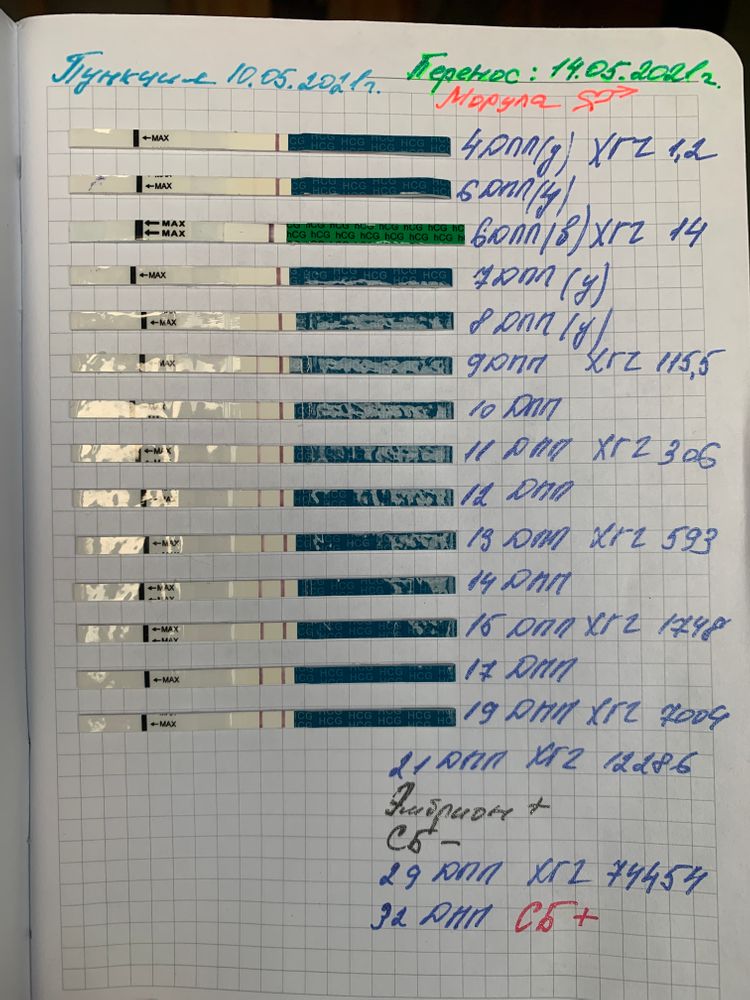 Пункция 10.05.2021г.
Перенос: 14.05.2021г.
Морула
←MAX 4 ДПП(у) ХГЧ 1,2
←MAX 6 ДПП(у)
←MAX
←MAX hCG hCG hCG hCG hCG hCG 6 ДПП(в) ХГЧ 14
←MAX 7 ДПП(у)
←MAX 8 ДПП(у)
MAX 9 ДПП ХГЧ 115,5
10 ДПП
←MAX 11 ДПП ХГЧ 306
12 ДПП
←MAX 13 ДПП ХГЧ 593
←MAX 14 ДПП
←MAX 15 ДПП ХГЧ 1748
←MAX 17 ДПП
←MAX HCG HCG HCG HCG 19 ДПП ХГЧ 7004
21 ДПП ХГЧ 12286
Эмбрион +
СБ –
29 ДПП ХГЧ 74454
32 ДПП СБ +